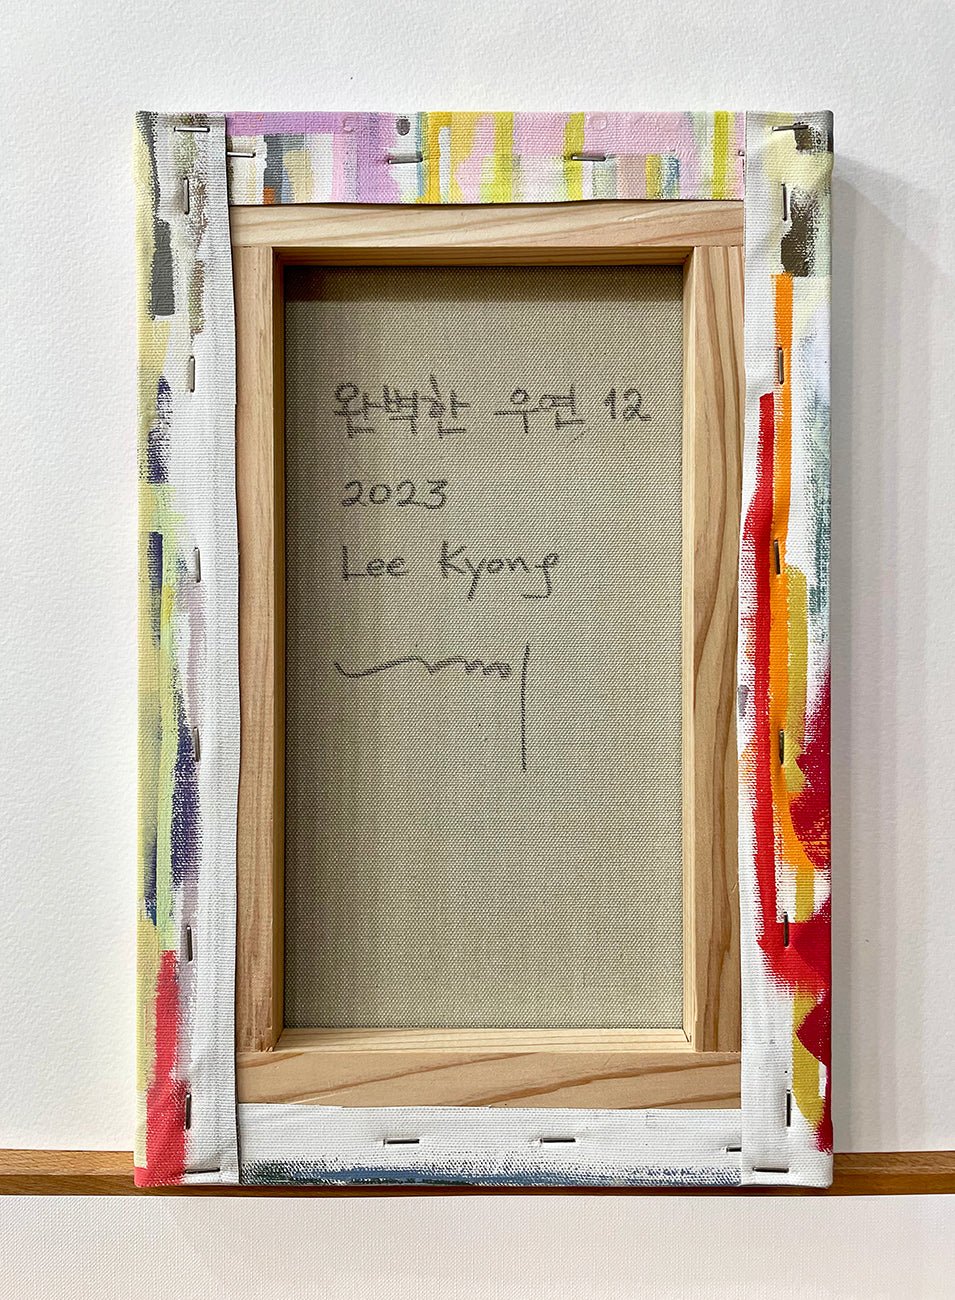 완벽한 우연 12
2023
Lee Kyong